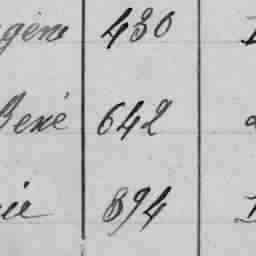 gène 430
René 642
ie 894